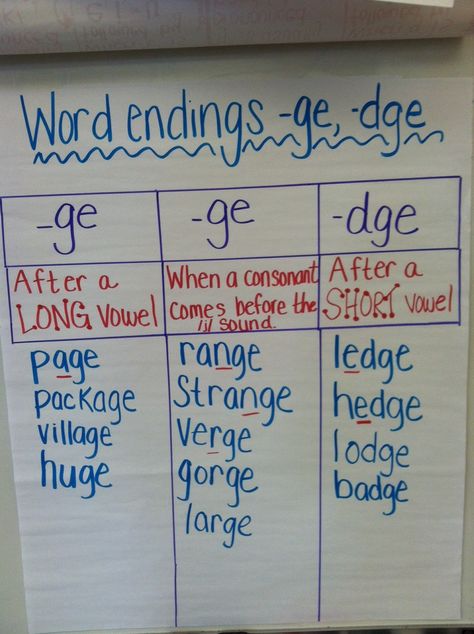 Word endings -ge, -dge
-ge
-ge
-dge
After a
LONG vowel
When a consonant
comes before the
/j/ sound.
After a
SHORT vowel
page
package
village
huge
range
strange
verge
gorge
large
ledge
hedge
lodge
badge